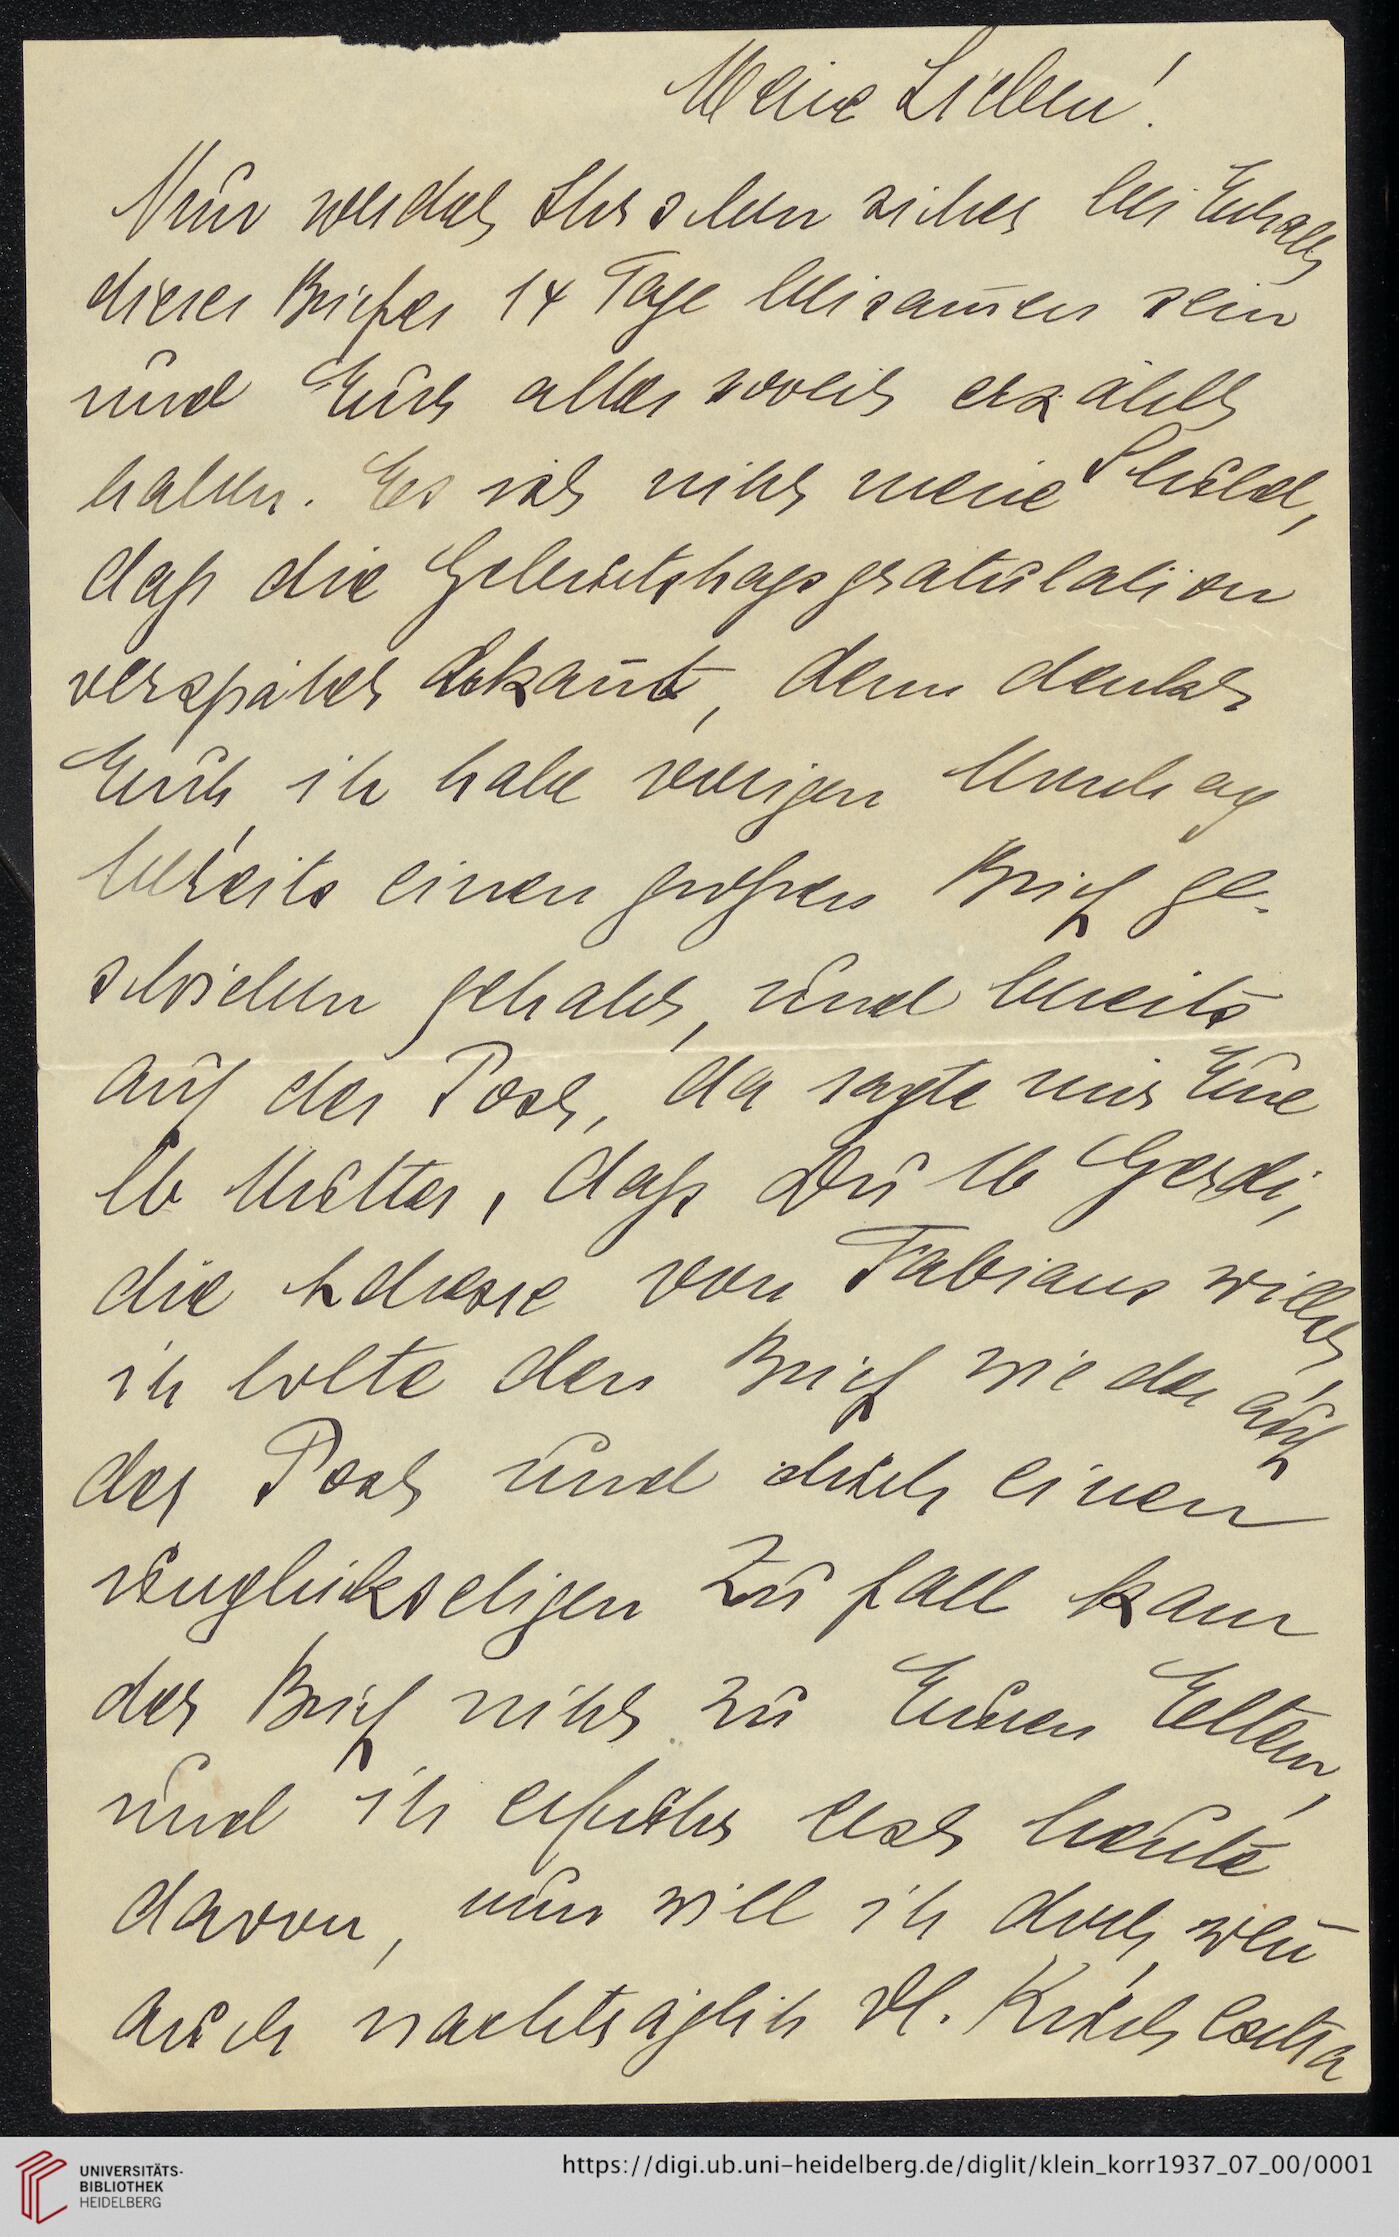 Meine Lieben!
Nun werdet Ihr schon sicher bei Erhalt
dieses Briefes 14 Tage beisam̅en sein
und Euch alles soweit erzählt
haben. Es ist nicht meine Schuld,
daß die Geburtstagsgratulation
verspätet ankam̅t, denn denkt
Euch ich habe vorigen Montag
bereits einen großen Brief ge-
schrieben gehabt, und bereits
auf der Post, da sagte mir Eure
lb Mutter, daß Du lb Gerdi,
die Adresse von Fabians willst,
ich holte den Brief wieder auf
der Post und durch einen
unglückseligen Zufall kam
der Brief nicht zu Euren Eltern,
und ich erfuhr erst heute
davon, nun will ich doch, wen̅
auch nachträglich Dl. Kurch extra
Universitäts-
Bibliothek
Heidelberg
https://digi.ub.uni-heidelberg.de/diglit/klein_korr1937_07_00/0001